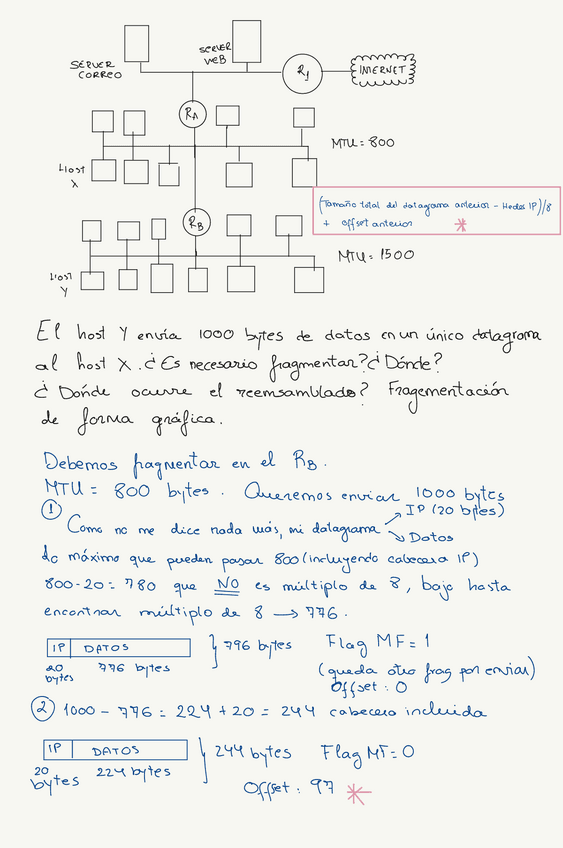 SERVER
CORREO
SERVER
WEB
R1
INTERNET
RA
MTU = 800
Host
X
(Tamaño total del datagrama anterior - Header IP)/8
+ Offset anterior *
RB
MTU = 1500
Host
Y
El host Y envía 1000 bytes de datos en un único datagrama
al host X. ¿Es necesario fragmentar? ¿Dónde?
¿Dónde ocurre el reemsamblado? Fragementación
de forma gráfica.
Debemos fragmentar en el RB.
MTU = 800 bytes. Queremos enviar 1000 bytes
① Como no me dice nada más, mi datagrama
IP (20 bytes)
Datos
Lo máximo que pueden pasar 800 (incluyendo cabecera IP)
800-20 = 780 que NO es múltiplo de 8, bajo hasta
encontrar múltiplo de 8 → 776.
IP DATOS } 796 bytes Flag MF = 1
20 bytes 776 bytes (queda otro frag por enviar)
Offset: 0
② 1000 - 776 = 224 + 20 = 244 cabecera incluida
IP DATOS } 244 bytes Flag MF = 0
20 bytes 224 bytes
Offset: 97 *